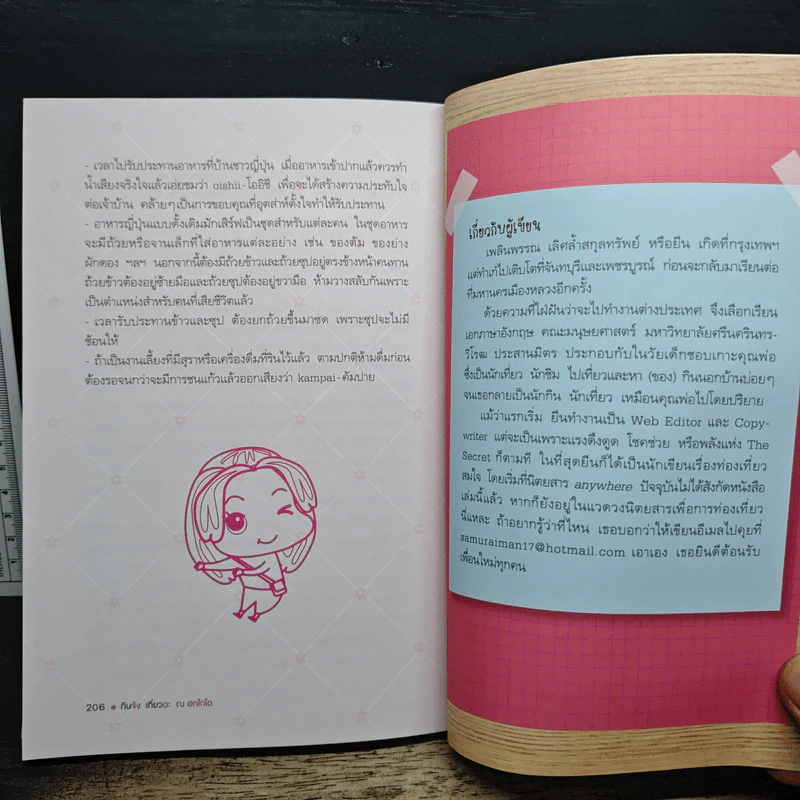 - เวลาไปรับประทานอาหารที่บ้านชาวญี่ปุ่น เมื่ออาหารเข้าปากแล้วควรทำ
น้ำเสียงจริงใจแล้วเอ่ยชมว่า oishii-โออิชี เพื่อจะได้สร้างความประทับใจ
ต่อเจ้าบ้าน คล้ายๆเป็นการขอบคุณที่อุตส่าห์ตั้งใจทำให้รับประทาน
- อาหารญี่ปุ่นแบบดั้งเดิมมักเสิร์ฟเป็นชุดสำหรับแต่ละคน ในชุดอาหาร
จะมีถ้วยหรือจานเล็กที่ใส่อาหารแต่ละอย่าง เช่น ของต้ม ของย่าง
ผักดอง ฯลฯ นอกจากนี้ต้องมีถ้วยข้าวและถ้วยซุปอยู่ตรงข้างหน้าคนทาน
ถ้วยข้าวต้องอยู่ซ้ายมือและถ้วยซุปต้องอยู่ขวามือ ห้ามวางสลับกันเพราะ
เป็นตำแหน่งสำหรับคนที่เสียชีวิตแล้ว
- เวลารับประทานข้าวและซุป ต้องยกถ้วยขึ้นมาซด เพราะซุปจะไม่มี
ช้อนให้
- ถ้าเป็นงานเลี้ยงที่มีสุราหรือเครื่องดื่มที่รินไว้แล้ว ตามปกติห้ามดื่มก่อน
ต้องรอจนกว่าจะมีการชนแก้วแล้วออกเสียงว่า kampai-คัมปาย
206 กินจัง เที่ยวอะ ณ ฮกไกโด
เกี่ยวกับผู้เขียน
เพลินพรรณ เลิศล้ำสกุลทรัพย์ หรือยีน เกิดที่กรุงเทพฯ
แต่ทำเก๋ไปเติบโตที่จันทบุรีและเพชรบูรณ์ ก่อนจะกลับมาเรียนต่อ
ที่มหานครเมืองหลวงอีกครั้ง
ด้วยความที่ใฝ่ฝันว่าจะไปทำงานต่างประเทศ จึงเลือกเรียน
เอกภาษาอังกฤษ คณะมนุษยศาสตร์ มหาวิทยาลัยศรีนครินทร-
วิโรฒ ประสานมิตร ประกอบกับในวัยเด็กชอบเกาะคุณพ่อ
ซึ่งเป็นนักเที่ยว นักชิม ไปเที่ยวและหา (ของ) กินนอกบ้านบ่อยๆ
จนเธอกลายเป็นนักกิน นักเที่ยว เหมือนคุณพ่อไปโดยปริยาย
แม้ว่าแรกเริ่ม ยีนทำงานเป็น Web Editor และ Copy-
writer แต่จะเป็นเพราะแรงดึงดูด โชคช่วย หรือพลังแห่ง The
Secret ก็ตามที ในที่สุดยีนก็ได้เป็นนักเขียนเรื่องท่องเที่ยว
สมใจ โดยเริ่มที่นิตยสาร anywhere ปัจจุบันไม่ได้สังกัดหนังสือ
เล่มนี้แล้ว หากก็ยังอยู่ในแวดวงนิตยสารเพื่อการท่องเที่ยว
นี่แหละ ถ้าอยากรู้ว่าที่ไหน เธอบอกว่าให้เขียนอีเมลไปคุยที่
samuraiman17@hotmail.com เอาเอง เธอยินดีต้อนรับ
เพื่อนใหม่ทุกคน